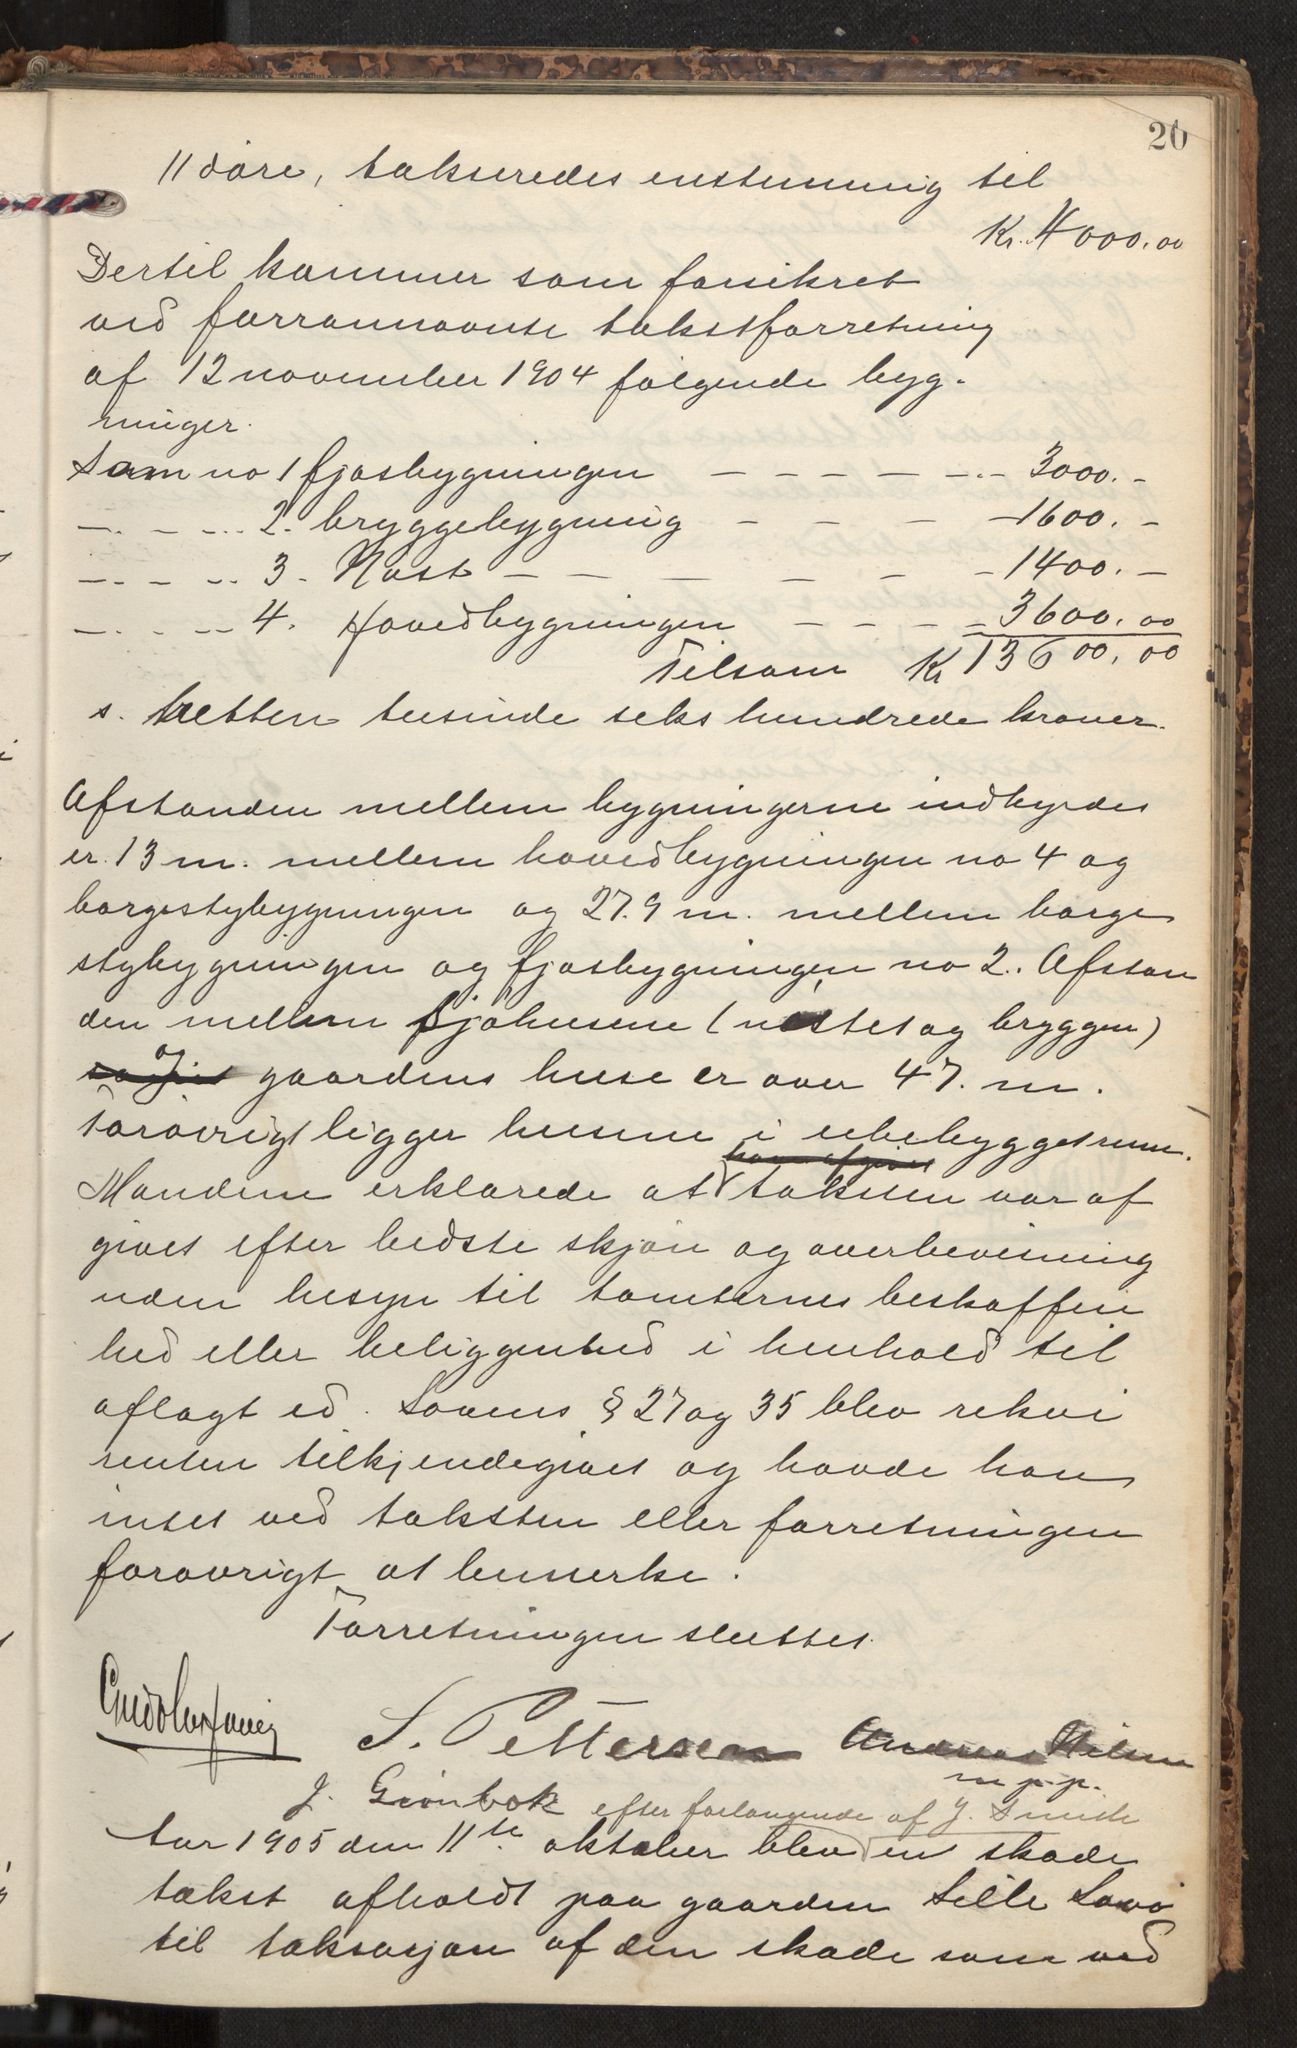 20
11 döre, takseredes enstemmig til
Kr. 4000.00
Dertil kommer som forsikret
ved forrannævnte takstforretning
af 12 november 1904 følgende byg-
ninger.
Som no 1 fjøsbygningen — — — — — 3000.-
—. — ... 2. bryggebygning — — — — 1600.-
—. — .. 3 - Nøst — — — — — — 1400.-
—. — — 4. Hovedbygningen — — — — 3600.00
Tilsam Kr 13600.00
s. tretten tusinde seks hundrede kroner.
Afstanden mellem bygningerne indbyrdes
er 13 m. mellem hovedbygningen no 4 og
borgestybygningen og 27.9 m. mellem borge
stybygningen og fjøsbygningen no 2. Afstan
den mellem sjøhusene (nøstet og bryggen)
og gaardens huse er over 47. m.
Forøvrigt ligger husene i ubebygget rum.
Mændene erklærede at taksten var af
givet efter bedste skjøn og overbevisning
uden hesyn til tomternes beskaffen
hed eller beliggenhed i henhold til
aflagt ed. Lovens § 27 og 35 blev rekvi
renten tilkjendegivet og havde han
intet ved taksten eller forretningen
forøvrigt at bemerke.
Forretningen sluttet.
S. Pettersen Andreas Nilsen
m p.p.
J. Grønbæk efter forlangende af J. Smith
Aar 1905 den 11te oktober blev en skade
takst afholdt paa gaarden Lille
til taksasjon af den skade som ved